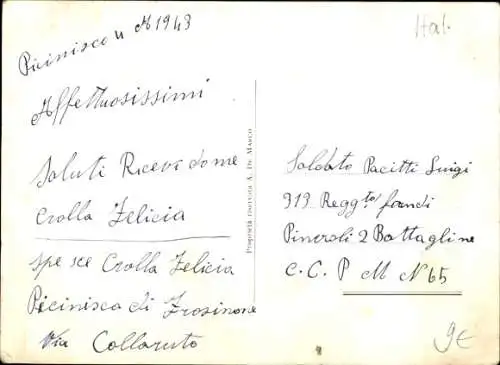 Picinisco 4 A 1943
Ital.
Affettuosissimi
Saluti Ricevi da me
Crolla Felicia
Spe sce Crolla Felicia
Picinisca di Frosinone
Via Collaruto
Proprietà riservata A. De Marco
Soldato Pacitti Luigi
313 Reggto fandi
Pineroli 2 Battagline
C. C. P M N 65
9€